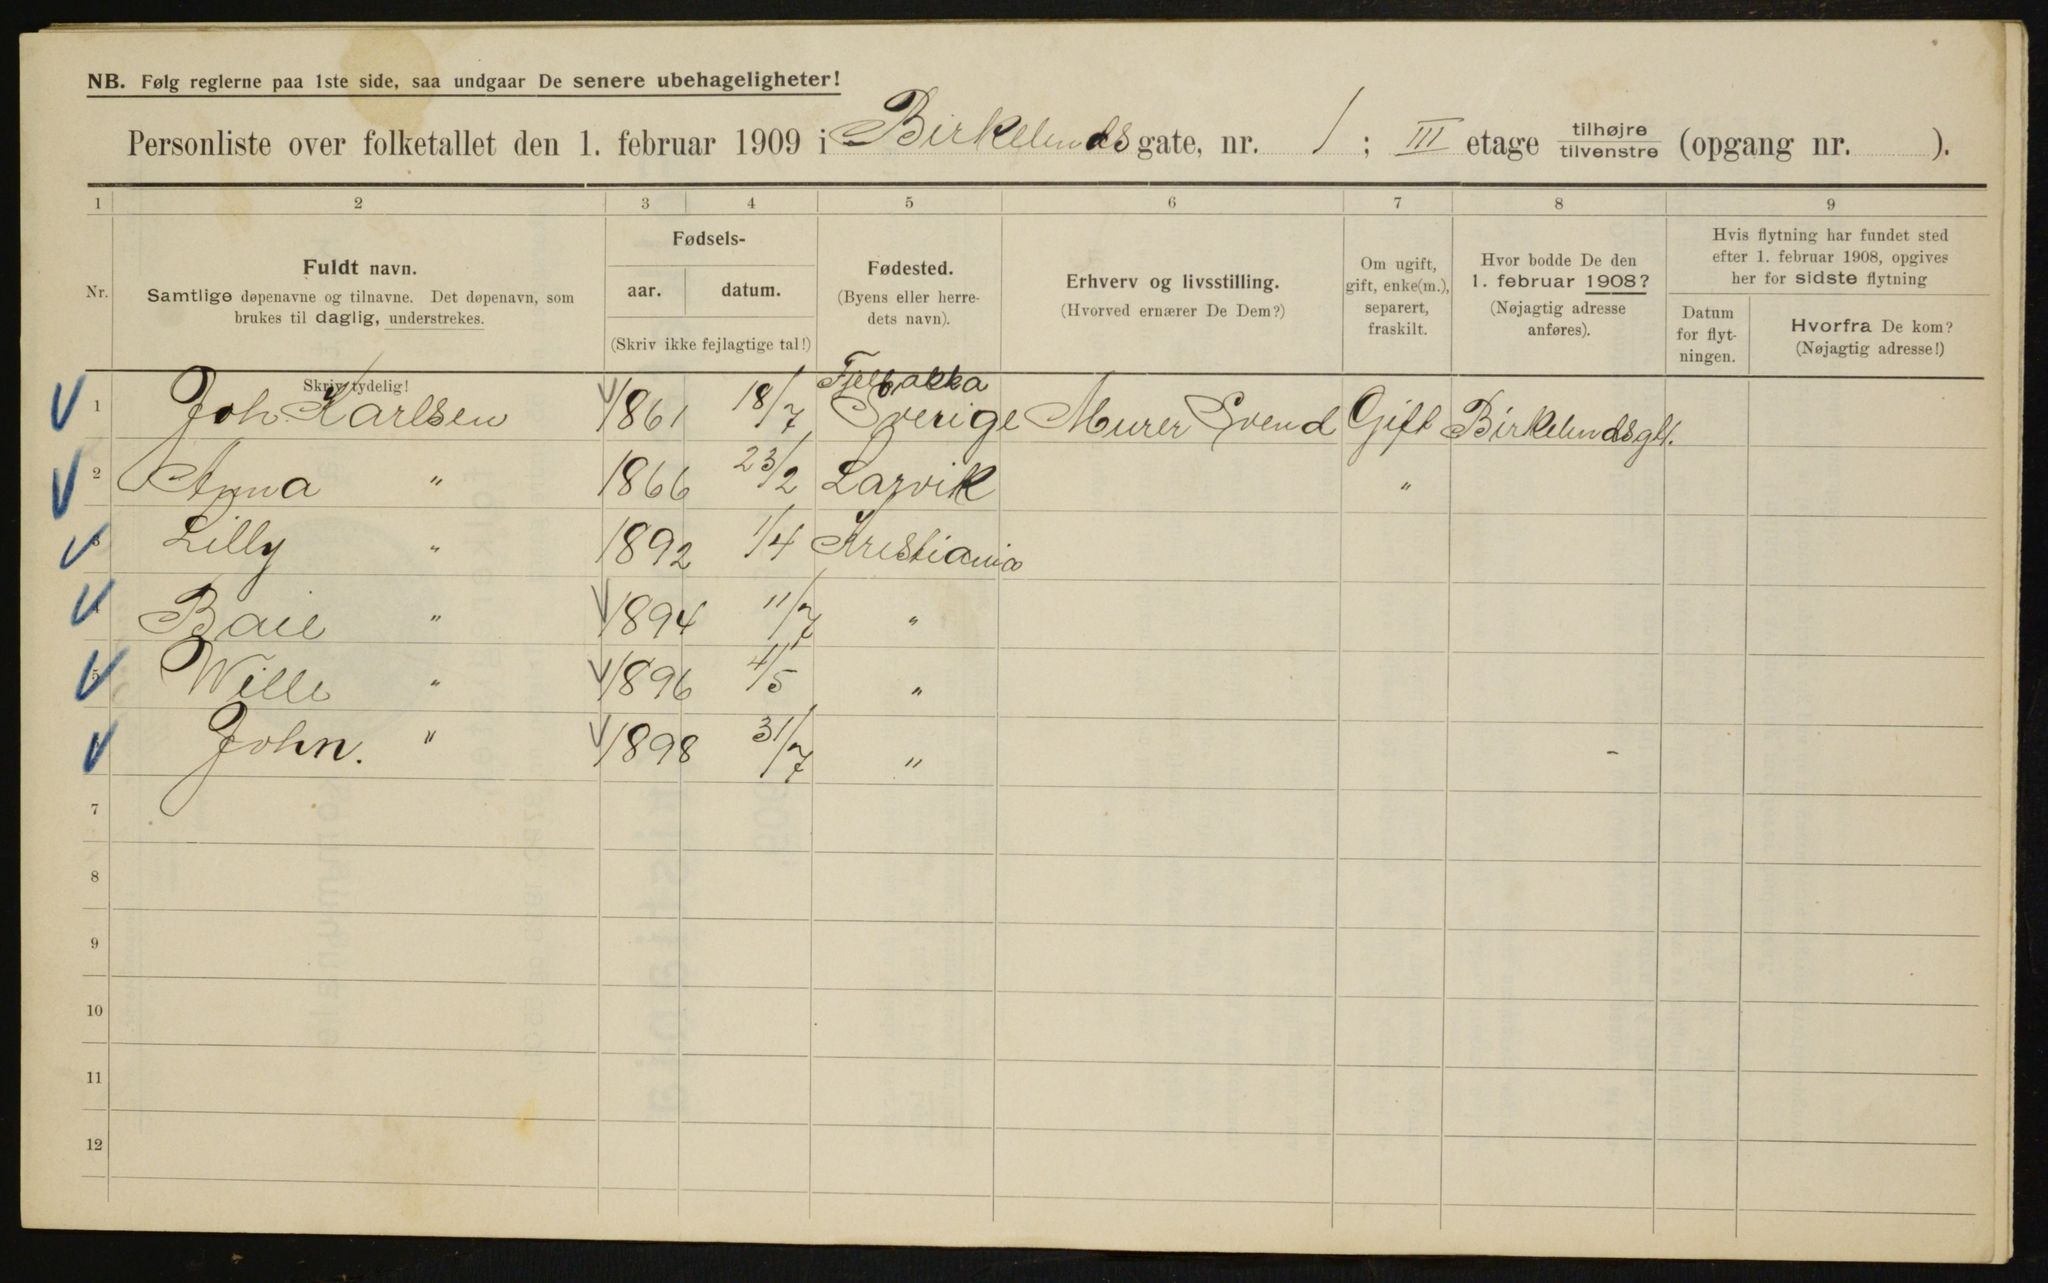 NB. Følg reglerne paa 1ste side, saa undgaar De senere ubehageligheter!
Personliste over folketallet den 1. februar 1909 i Birkelundsgate, nr. 1; III etage tilhøjre/tilvenstre (opgang nr. ).
1 2 3 4 5 6 7 8 9
Nr.
Fuldt navn.
Samtlige døpenavne og tilnavne. Det døpenavn, som
brukes til daglig, understrekes.
Skriv tydelig!
Fødsels-
aar. datum.
(Skriv ikke fejlagtige tal!)
Fødested.
(Byens eller herre-
dets navn).
Erhverv og livsstilling.
(Hvorved ernærer De Dem?)
Om ugift,
gift, enke(m.),
separert,
fraskilt.
Hvor bodde De den
1. februar 1908?
(Nøjagtig adresse
anføres).
Hvis flytning har fundet sted
efter 1. februar 1908, opgives
her for sidste flytning
Datum
for flyt-
ningen.
Hvorfra De kom?
(Nøjagtig adresse!)
Fjelbakka
1 Joh. Karlsen 1861 18/7 Sverige Murer Svend Gift Birkelundsgt.
2 Anna " 1866 23/2 Larvik "
3 Lilly " 1892 1/4 Kristiania
4 " 1894 11/7 "
5 Wille " 1896 4/5 "
John. " 1898 31/7 " -
7
8
9
10
11
12